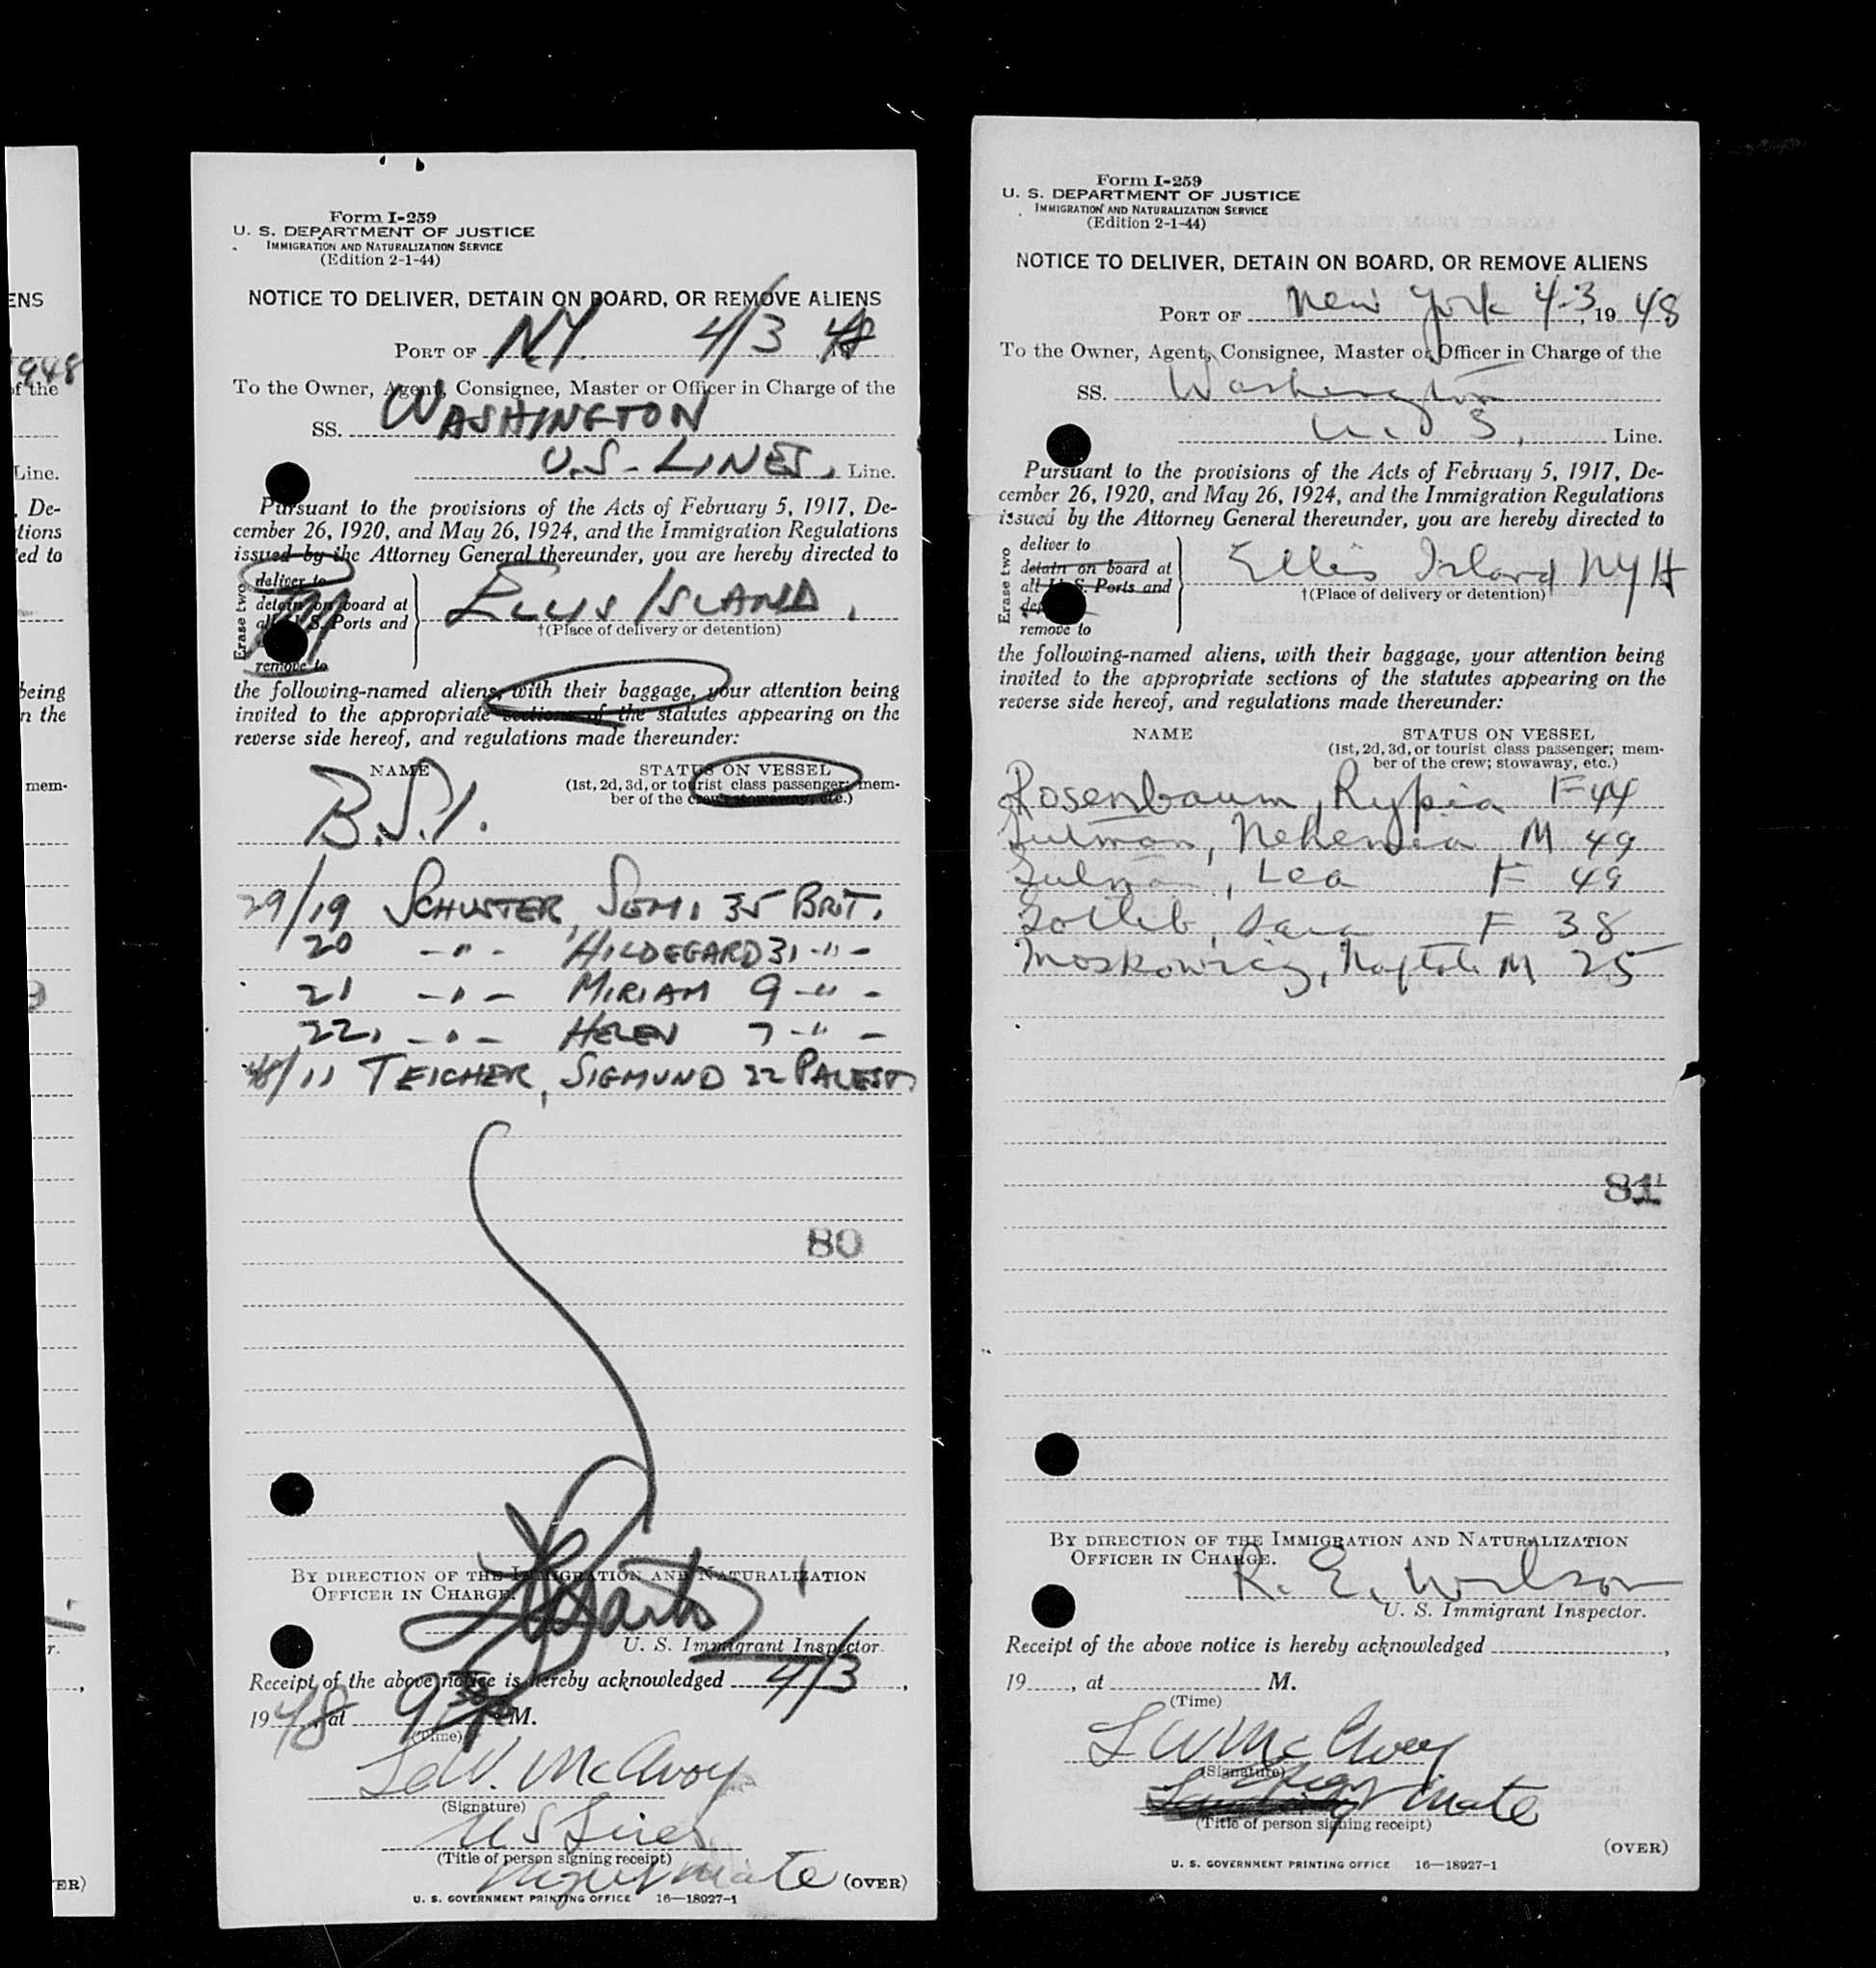 ENS
1948
of the
Line.
, De-
tions
ed to
being
n the
mem-
r.
VER)
Form I-259
U. S. DEPARTMENT OF JUSTICE
IMMIGRATION AND NATURALIZATION SERVICE
(Edition 2-1-44)
NOTICE TO DELIVER, DETAIN ON BOARD, OR REMOVE ALIENS
PORT OF N.Y. 4/3 48
To the Owner, Agent, Consignee, Master or Officer in Charge of the
SS. WASHINGTON
U.S. LINES, Line.
Pursuant to the provisions of the Acts of February 5, 1917, De-
cember 26, 1920, and May 26, 1924, and the Immigration Regulations
issued by the Attorney General thereunder, you are hereby directed to
Erase two
deliver to
detain on board at
all U. S. Ports and
remove to
ELLIS ISLAND,
†(Place of delivery or detention)
the following-named aliens, with their baggage, your attention being
invited to the appropriate sections of the statutes appearing on the
reverse side hereof, and regulations made thereunder:
NAME STATUS ON VESSEL
(1st, 2d, 3d, or tourist class passenger; mem-
ber of the crew; stowaway, etc.)
B.S.I.
29/19 SCHUSTER, SEMI 35 BRIT.
20 -"- HILDEGARD 31 -"-
21 -"- MIRIAM 9 -"-
22, -"- HELEN 7 -"-
/11 TEICHER, SIGMUND 22 PALEST.
80
BY DIRECTION OF THE IMMIGRATION AND NATURALIZATION
OFFICER IN CHARGE.
U. S. Immigrant Inspector.
Receipt of the above notice is hereby acknowledged 4/3,
1948, at 9 30 M.
(Time)
McAvoy
(Signature)
US Lines
(Title of person signing receipt)
Night mate (OVER)
U. S. GOVERNMENT PRINTING OFFICE 16—18927-1
Form I-259
U. S. DEPARTMENT OF JUSTICE
IMMIGRATION AND NATURALIZATION SERVICE
(Edition 2-1-44)
NOTICE TO DELIVER, DETAIN ON BOARD, OR REMOVE ALIENS
PORT OF New York 4-3, 19 48
To the Owner, Agent, Consignee, Master or Officer in Charge of the
SS. Washington
U. S. Line.
Pursuant to the provisions of the Acts of February 5, 1917, De-
cember 26, 1920, and May 26, 1924, and the Immigration Regulations
issued by the Attorney General thereunder, you are hereby directed to
Erase two
deliver to
detain on board at
all U. S. Ports and
remove to
Ellis Island NYH
†(Place of delivery or detention)
the following-named aliens, with their baggage, your attention being
invited to the appropriate sections of the statutes appearing on the
reverse side hereof, and regulations made thereunder:
NAME STATUS ON VESSEL
(1st, 2d, 3d, or tourist class passenger; mem-
ber of the crew; stowaway, etc.)
Rosenbaum, Rypia F 44
Nehemia M 49
Lea F 49
Gotlib, Sara F 38
Moskowicz, Naftali M 25
81
BY DIRECTION OF THE IMMIGRATION AND NATURALIZATION
OFFICER IN CHARGE.
R. E. Wilson
U. S. Immigrant Inspector.
Receipt of the above notice is hereby acknowledged ,
19 , at M.
(Time)
L W McAvoy
(Signature)
Night Mate
(Title of person signing receipt)
(OVER)
U. S. GOVERNMENT PRINTING OFFICE 16—18927-1